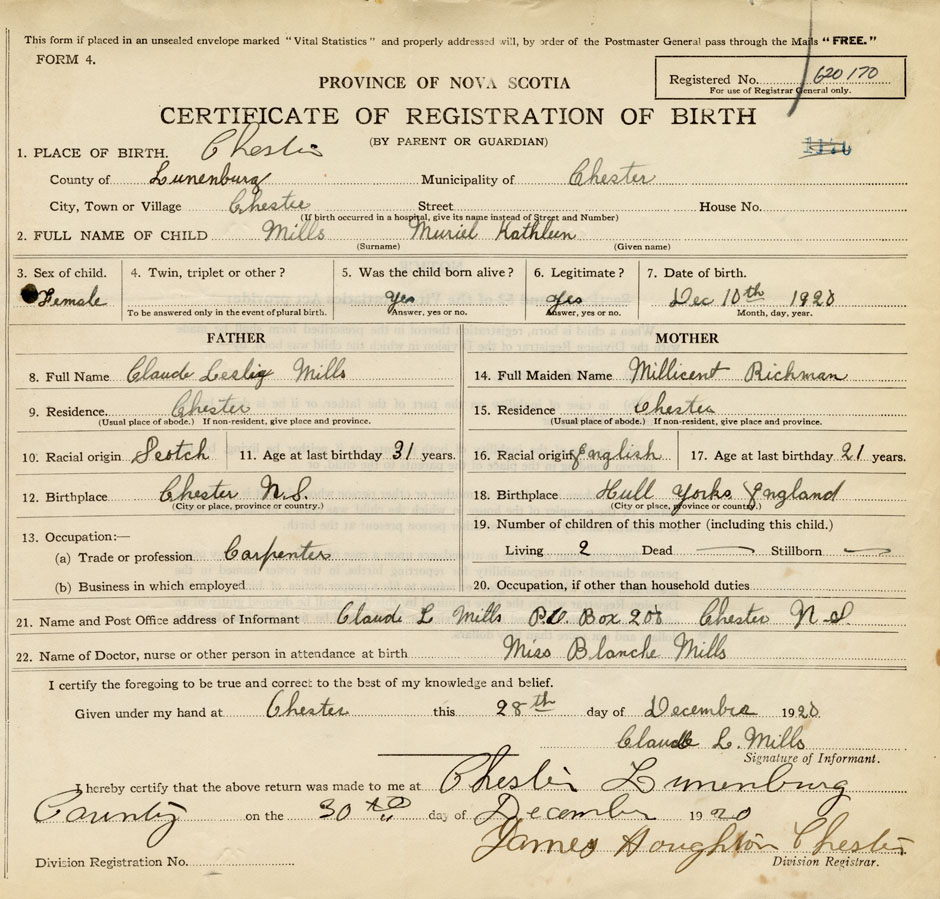 This form if placed in an unsealed envelope marked "Vital Statistics" and properly addressed will, by order of the Postmaster General pass through the Mails "FREE."
FORM 4.
PROVINCE OF NOVA SCOTIA
Registered No. 620170
For use of Registrar General only.
CERTIFICATE OF REGISTRATION OF BIRTH
(BY PARENT OR GUARDIAN)
1. PLACE OF BIRTH. Chester
County of Lunenburg Municipality of Chester
City, Town or Village Chester Street House No.
(If birth occurred in a hospital, give its name instead of Street and Number)
2. FULL NAME OF CHILD Mills Muriel Kathleen
(Surname) (Given name)
3. Sex of child. 4. Twin, triplet or other? 5. Was the child born alive? 6. Legitimate? 7. Date of birth.
Female Yes Yes Dec 10th 1920
To be answered only in the event of plural birth. Answer, yes or no. Answer, yes or no. Month, day, year.
FATHER MOTHER
8. Full Name Claude Leslie Mills 14. Full Maiden Name Millicent Richman
9. Residence. Chester 15. Residence Chester
(Usual place of abode.) If non-resident, give place and province. (Usual place of abode.) If non-resident, give place and province.
10. Racial origin Scotch 11. Age at last birthday 31 years. 16. Racial origin English 17. Age at last birthday 21 years.
12. Birthplace Chester N.S. 18. Birthplace Hull Yorks England
(City or place, province or country.) (City or place, province or country.)
13. Occupation:— 19. Number of children of this mother (including this child.)
(a) Trade or profession Carpenter Living 2 Dead — Stillborn —
(b) Business in which employed 20. Occupation, if other than household duties
21. Name and Post Office address of Informant Claude L Mills P.O. Box 208 Chester N S.
22. Name of Doctor, nurse or other person in attendance at birth Miss Blanche Mills
I certify the foregoing to be true and correct to the best of my knowledge and belief.
Given under my hand at Chester this 28th day of December 1920
Claude L. Mills
Signature of Informant.
I hereby certify that the above return was made to me at Chester Lunenburg
County on the 30th day of December 1920
James Houghton Chester
Division Registration No. Division Registrar.